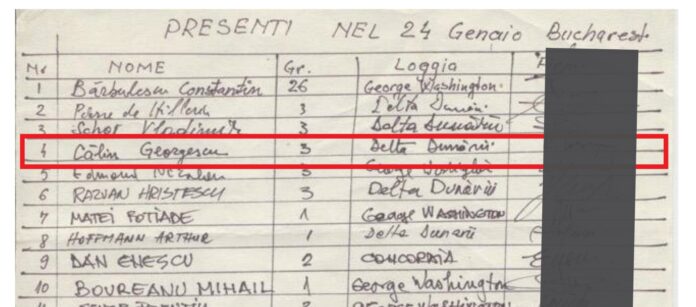 PRESENTI NEL 24 Genaio Bucharest
Nr NOME Gr. Loggia
1 Bărbulescu Constantin 26 George Washington
2 Pierre de Hillerin 3 Delta Dunării
3 Schor Vladimir 3 Delta Dunării
4 Călin Georgescu 3 Delta Dunării
5 Edmond 3 George Washington
6 RAZVAN HRISTESCU 3 Delta Dunării
7 MATEI FOTIADE 1 George WASHINGTON
8 HOFFMANN ARTHUR 1 Delta Dunarii
9 DAN ENESCU 2 CONCORDIA
10 BOUREANU MIHAIL 1 George Washington